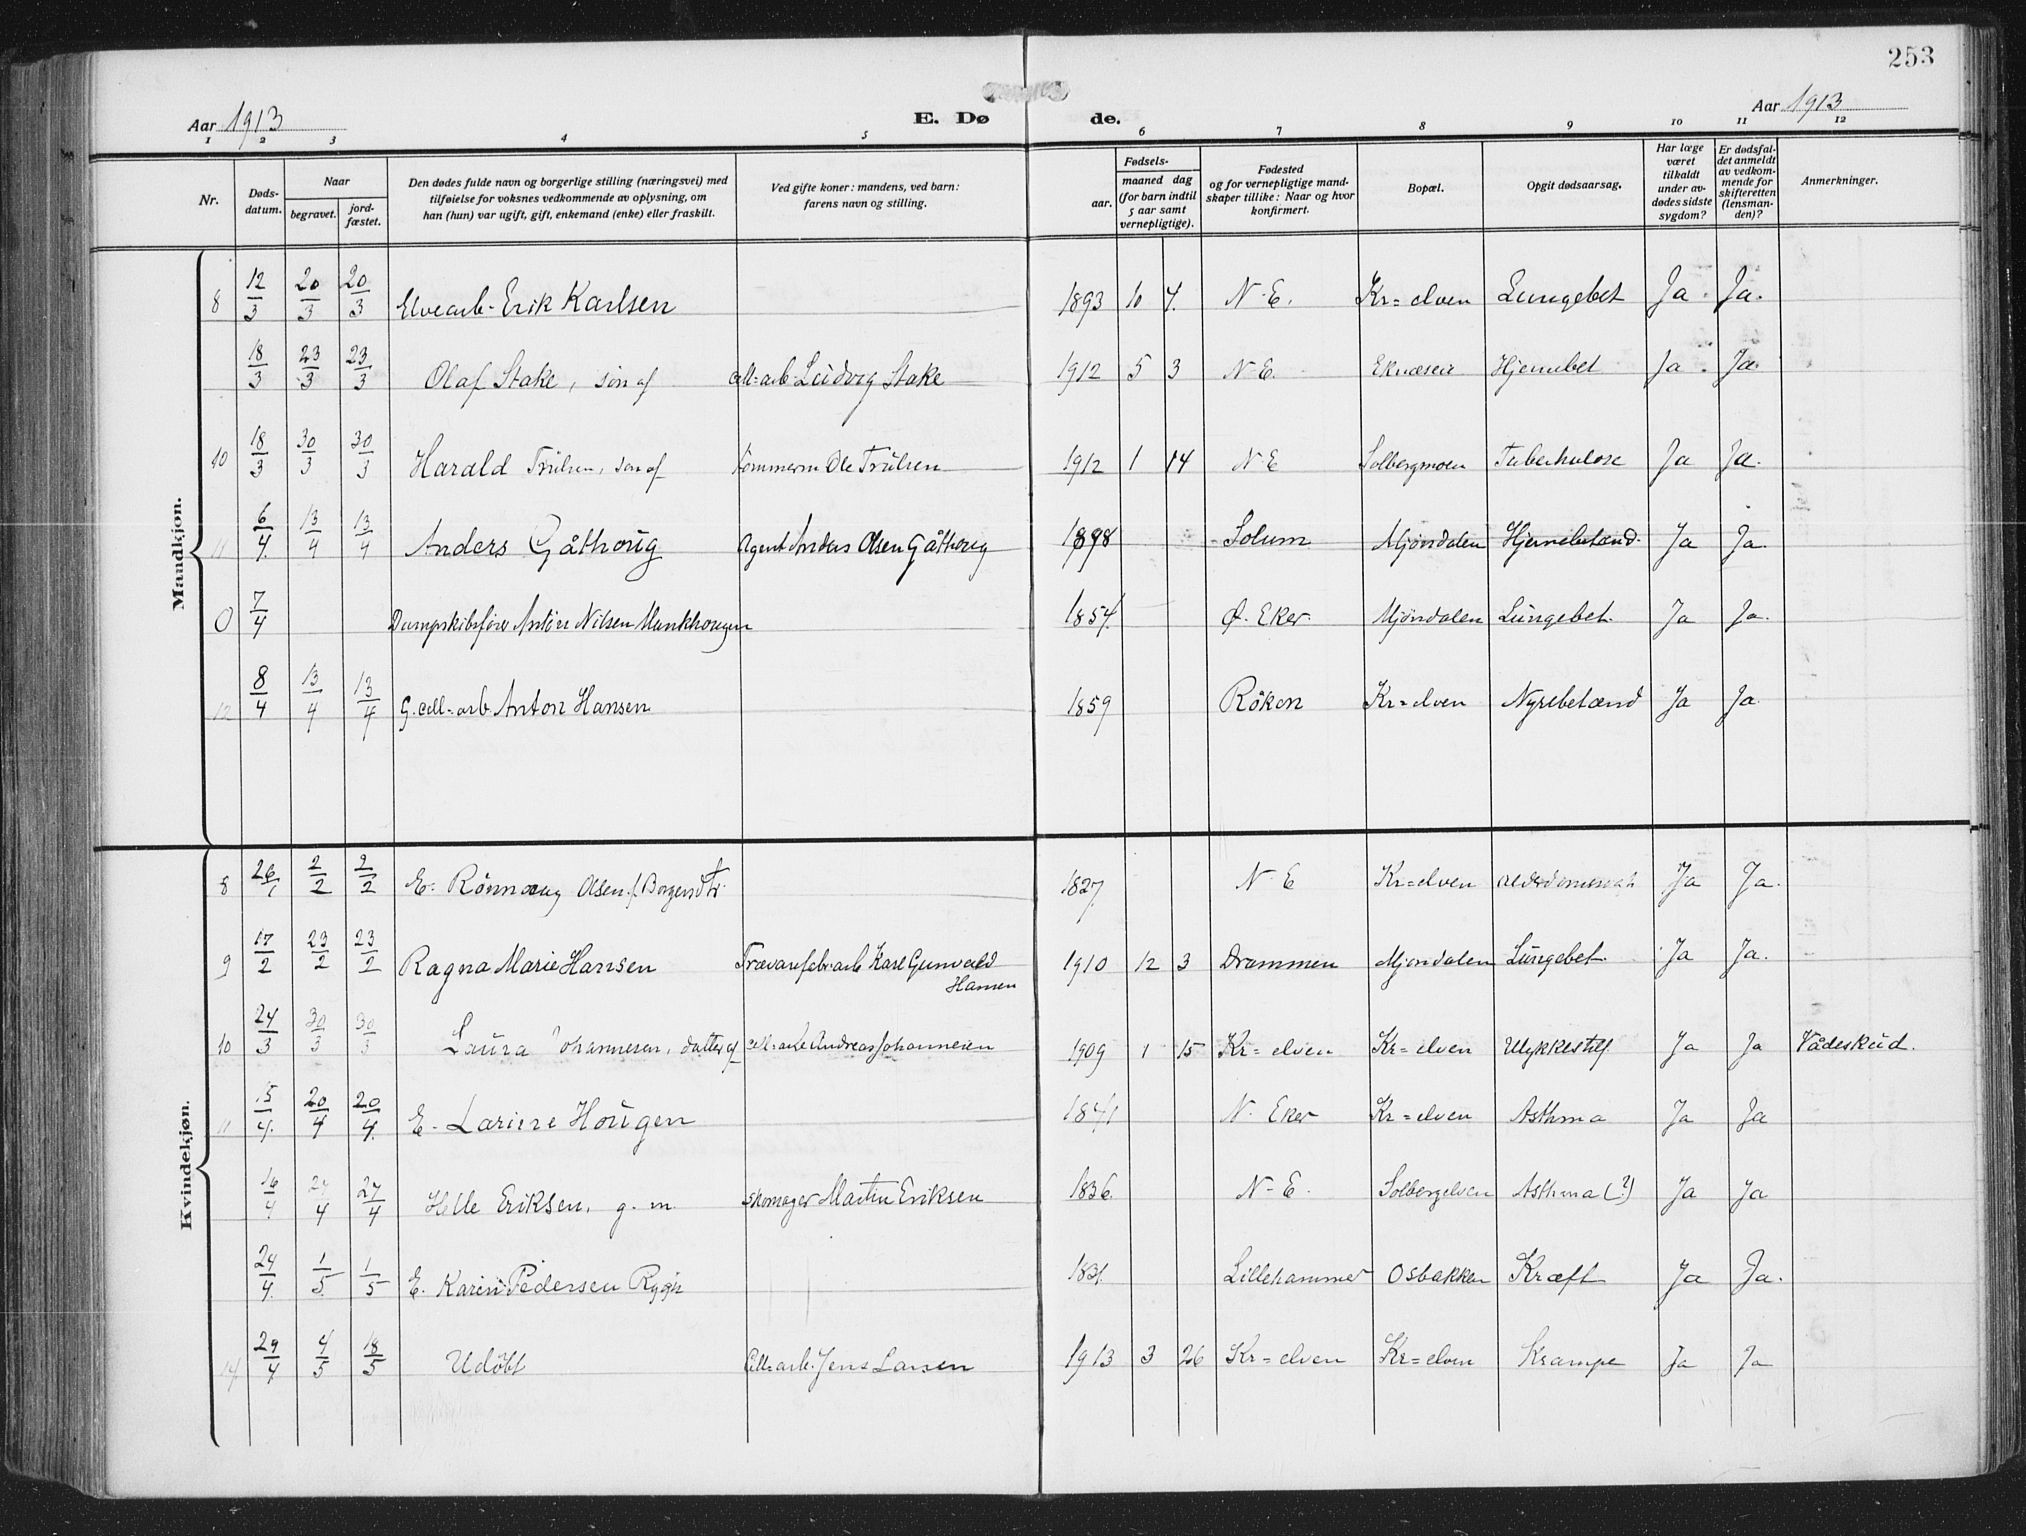 253
Aar 1913
E. Dø de.
Aar 1913
1 2 3 4 5 6 7 8 9 10 11 12
Nr.
Døds-
datum.
Naar
begravet.
jord-
fæstet.
Den dødes fulde navn og borgerlige stilling (næringsvei) med
tilføielse for voksnes vedkommende av oplysning, om
han (hun) var ugift, gift, enkemand (enke) eller fraskilt.
Ved gifte koner: mandens, ved barn:
farens navn og stilling.
Fødsels-
aar.
maaned dag
(for barn indtil
5 aar samt
vernepligtige).
Fødested
og for vernepligtige mand-
skaper tillike: Naar og hvor
konfirmert.
Bopæl.
Opgit dødsaarsag.
Har læge
været
tilkaldt
under av-
dødes sidste
sygdom?
Er dødsfal-
det anmeldt
av vedkom-
mende for
skifteretten
(lensman-
den)?
Anmerkninger.
Mandkjøn.
8 12/3 20/3 20/3 Elvearb. Erik Karlsen 1893 10 4. N-E. Kr=elven Lungebet Ja. Ja.
18/3 23/3 23/3 Olaf Stake, søn af cell=arb Ludvig Stake 1912 5 3 N-E. Eknæseie Hjernebet Ja. Ja.
10 18/3 30/3 30/3 Harald Trulsen, søn af tømmerm Ole Trulsen 1912 1 14 N-E Solbergmoen Tuberkulose Ja Ja.
11 6/4. 13/4 13/4 Anders Gåthoug Agent Anders Olsen Gåthoug 1898 Solum Mjøndalen Hjernebetænd. Ja Ja.
0 7/4 Dampskibsfører Antoni Nilsen Munkhougen 1854. Ø. Eker. Mjøndalen Lungebet. Ja Ja.
12 8/4 13/4 13/4 G. cell=arb Anton Hansen 1859 Røken Kr=elven Nyrebetænd Ja Ja.
Kvindekjøn.
8 26/1 2/2 2/2 E= Rønnaug Olsen f. Borgersdtr. 1827 N-E Kr=elven Ja Ja.
9 17/2 23/2 23/2 Ragna Marie Hansen Trævarefabr=arb Karl Gunvald
Hansen 1910 12 3 Drammen Mjøndalen Lungebet. Ja Ja.
10 24/3 30/3 30/3 Laura Johannesen, datter af cell=arb Andreas Johannesen 1909 1 15 Kr=elven Kr=elven Ulykkestilf Ja Ja Vådeskud.
11 15/4. 20/4 20/4. E. Larine Hougen 1841 N. Eker Kr=elven Asthma Ja Ja
16/4 27/4 27/4 Helle Eriksen, g. m. skomager Martin Eriksen 1836. N-E. Solbergelven Asthma (?) Ja Ja
24/4. 1/5 1/5 E. Karin Pedersen Rygh 1831. Lillehammer Osbakken Kræft Ja Ja.
14 29/4 4/5 18/5 Udøbt Cell=arb. Jens Larsen 1913 3 26 Kr=elven Kr=elven Krampe Ja Ja